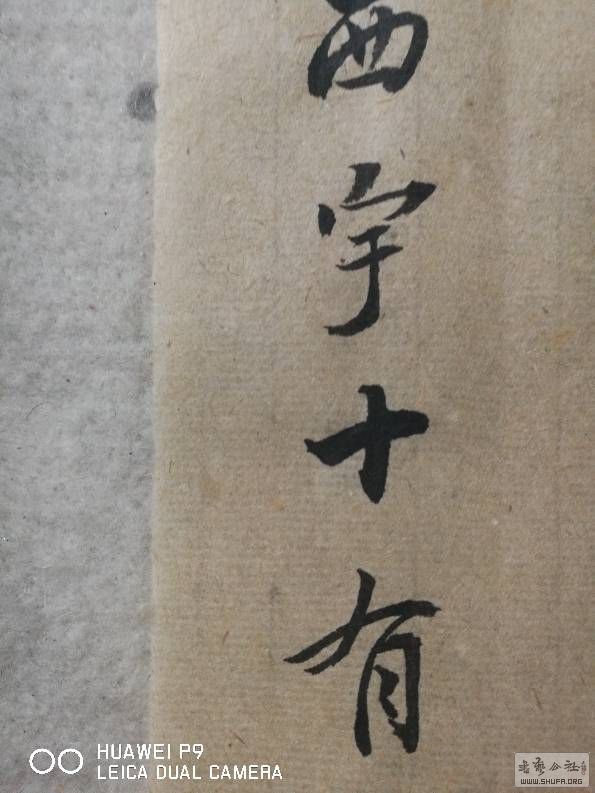 西宇十有
HUAWEI P9
LEICA DUAL CAMERA
WWW.SHUFA.ORG